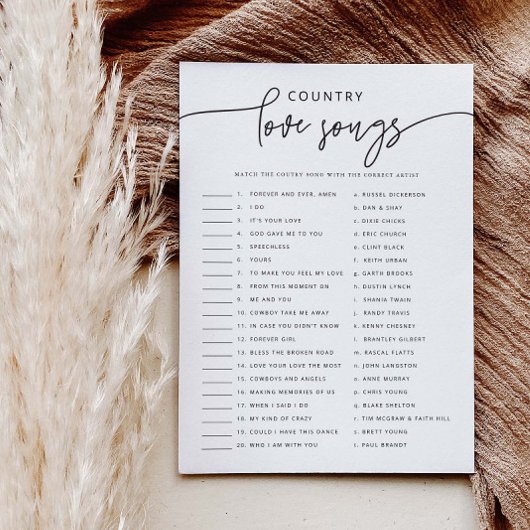 COUNTRY
love songs
MATCH THE COUTRY SONG WITH THE CORRECT ARTIST
1. FOREVER AND EVER, AMEN a. RUSSEL DICKERSON
2. I DO b. DAN & SHAY
3. IT'S YOUR LOVE c. DIXIE CHICKS
4. GOD GAVE ME TO YOU d. ERIC CHURCH
5. SPEECHLESS e. CLINT BLACK
6. YOURS f. KEITH URBAN
7. TO MAKE YOU FEEL MY LOVE g. GARTH BROOKS
8. FROM THIS MOMENT ON h. DUSTIN LYNCH
9. ME AND YOU i. SHANIA TWAIN
10. COWBOY TAKE ME AWAY j. RANDY TRAVIS
11. IN CASE YOU DIDN'T KNOW k. KENNY CHESNEY
12. FOREVER GIRL l. BRANTLEY GILBERT
13. BLESS THE BROKEN ROAD m. RASCAL FLATTS
14. LOVE YOUR LOVE THE MOST n. JOHN LANGSTON
15. COWBOYS AND ANGELS o. ANNE MURRAY
16. MAKING MEMORIES OF US p. CHRIS YOUNG
17. WHEN I SAID I DO q. BLAKE SHELTON
18. MY KIND OF CRAZY r. TIM MCGRAW & FAITH HILL
19. COULD I HAVE THIS DANCE s. BRETT YOUNG
20. WHO I AM WITH YOU t. PAUL BRANDT